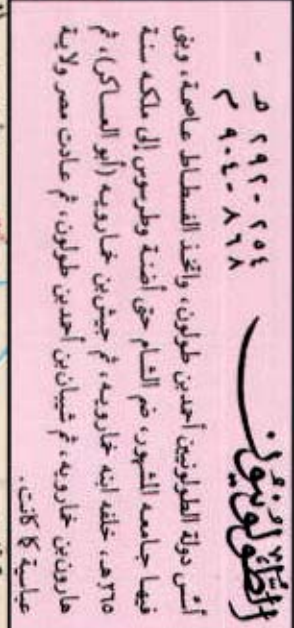 الطُّولُونيّون
٢٥٤ - ٢٩٢ هـ -
٨٦٨ - ٩٠٤ م
أسّس دولة الطولونيين أحمد بن طولون، واتخذ الفسطاط عاصمة، وبنى
فيها جامعه الشهور، ضم الشام حتى أضنة وطرسوس إلى ملكه سنة
٢٦٥ هـ، خلفه ابنه خارويه، ثم جيش بن خارويه (أبو العساكر)، ثم
هارون بن خارويه، ثم شيبان بن أحمد بن طولون، ثم عادت مصر ولاية
عباسية كما كانت.